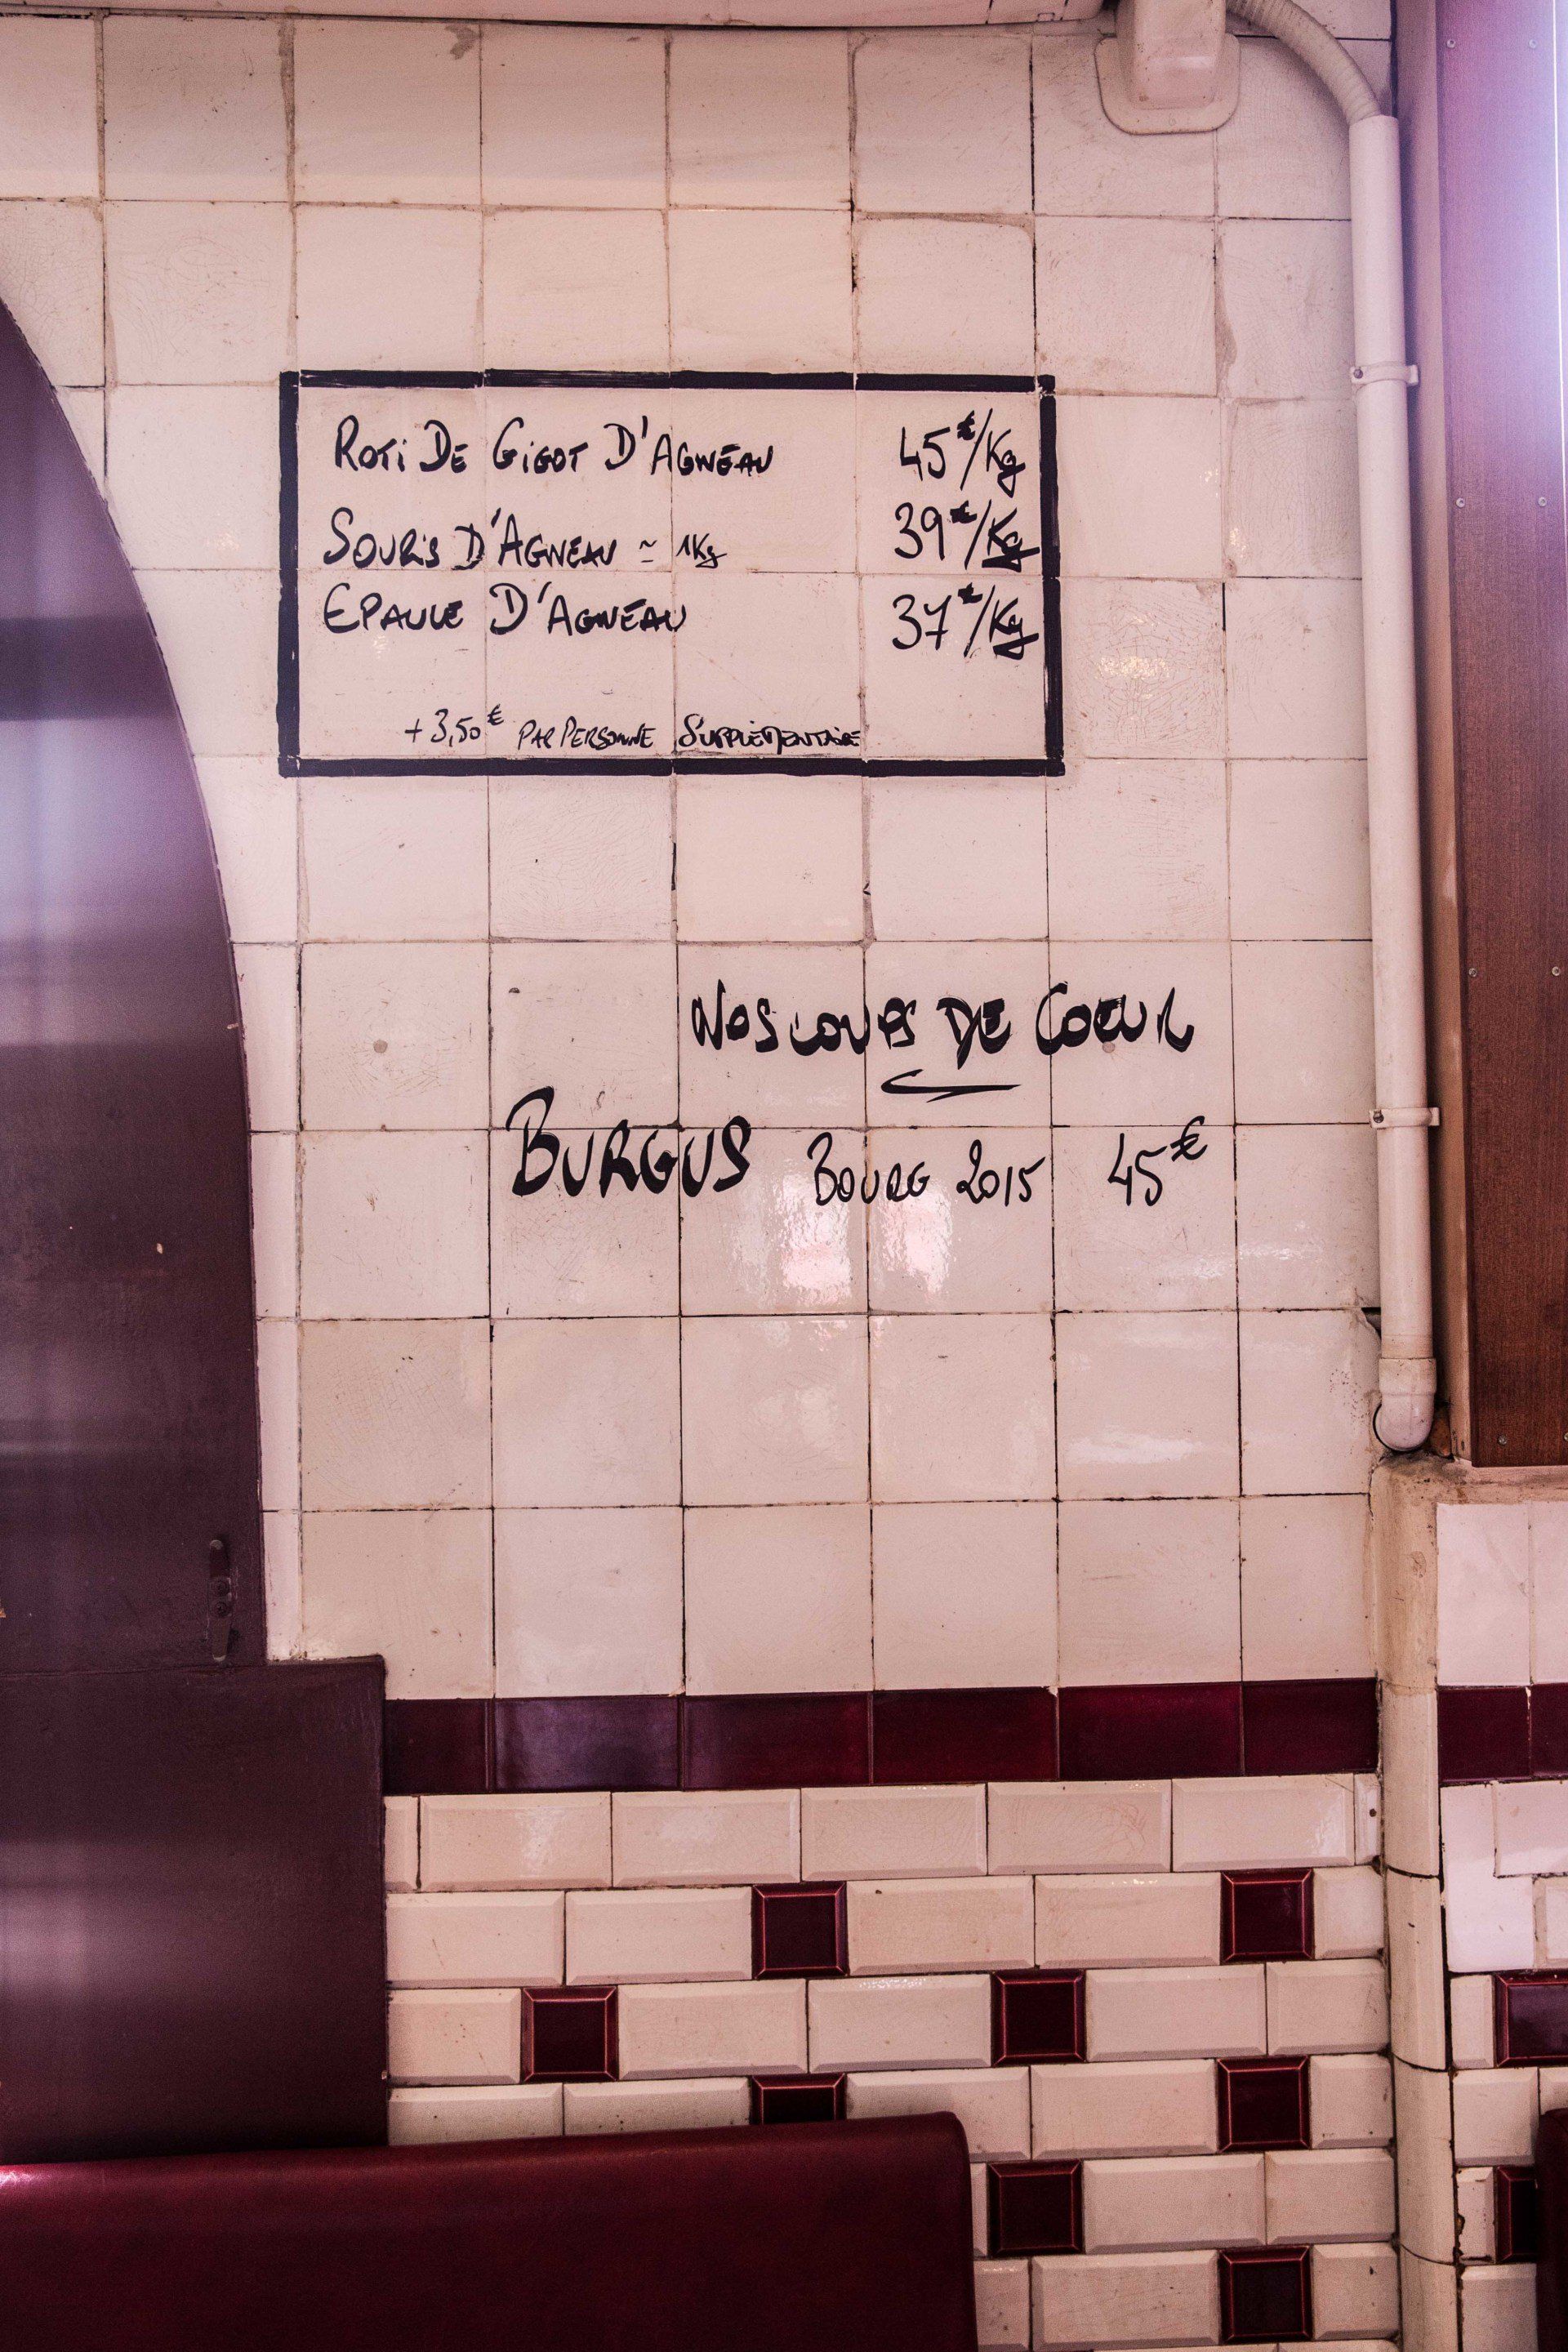 ROTI DE GIGOT D'AGNEAU 45€/Kg
SOURIS D'AGNEAU ≃ 1Kg 39€/Kg
EPAULE D'AGNEAU 37€/Kg
+3,50€ PAR PERSONNE SUPPLÉMENTAIRE
NOS COUPS DE COEUR
BURGUS BOURG 2015 45€